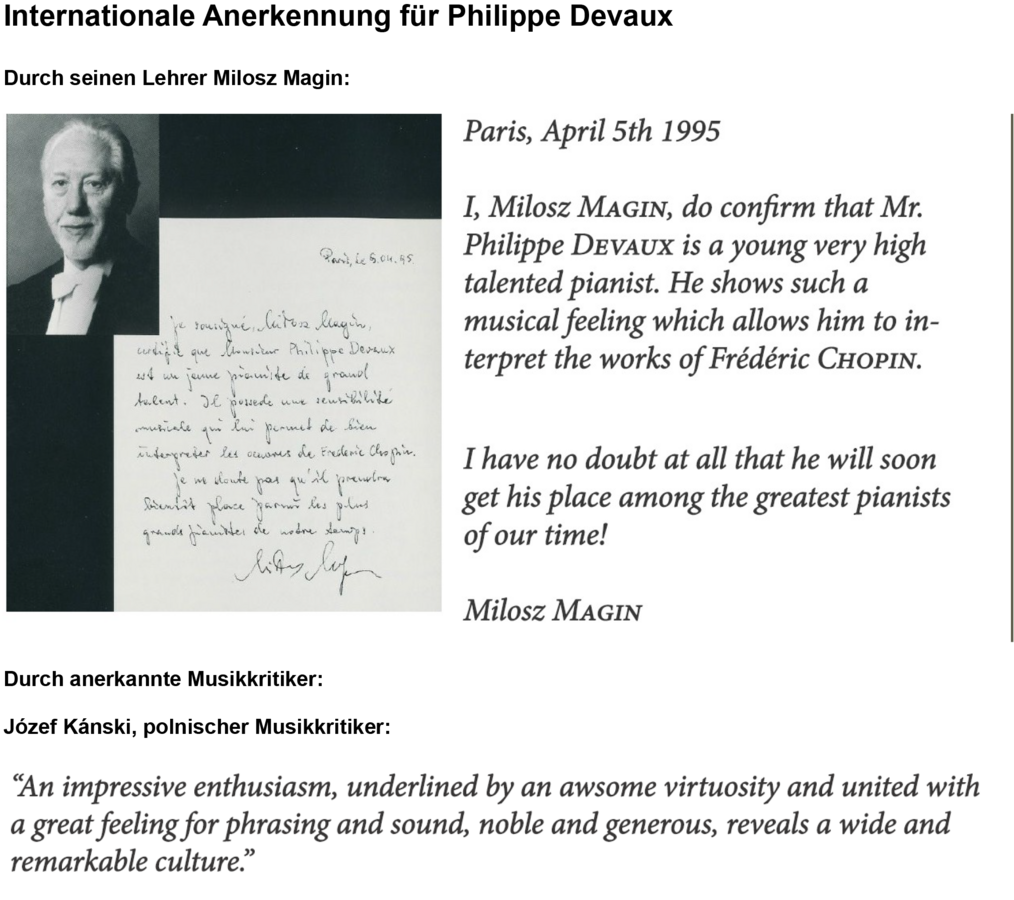 Internationale Anerkennung für Philippe Devaux
Durch seinen Lehrer Milosz Magin:
Paris, le 5.04.95
je sousigné, Milosz Magin,
certifie que Monsieur Philippe Devaux
est un jeune pianiste de grand
talent. Il possede une sensibilité
musicale qui lui permet de bien
interpreter les œuvres de Frederic Chopin.
je ne doute pas qu'il prendra
bientôt place parmi les plus
grands pianistes de notre temps.
Milosz Magin
Paris, April 5th 1995
I, Milosz MAGIN, do confirm that Mr.
Philippe DEVAUX is a young very high
talented pianist. He shows such a
musical feeling which allows him to in-
terpret the works of Frédéric CHOPIN.
I have no doubt at all that he will soon
get his place among the greatest pianists
of our time!
Milosz MAGIN
Durch anerkannte Musikkritiker:
Józef Kánski, polnischer Musikkritiker:
“An impressive enthusiasm, underlined by an awsome virtuosity and united with
a great feeling for phrasing and sound, noble and generous, reveals a wide and
remarkable culture.”